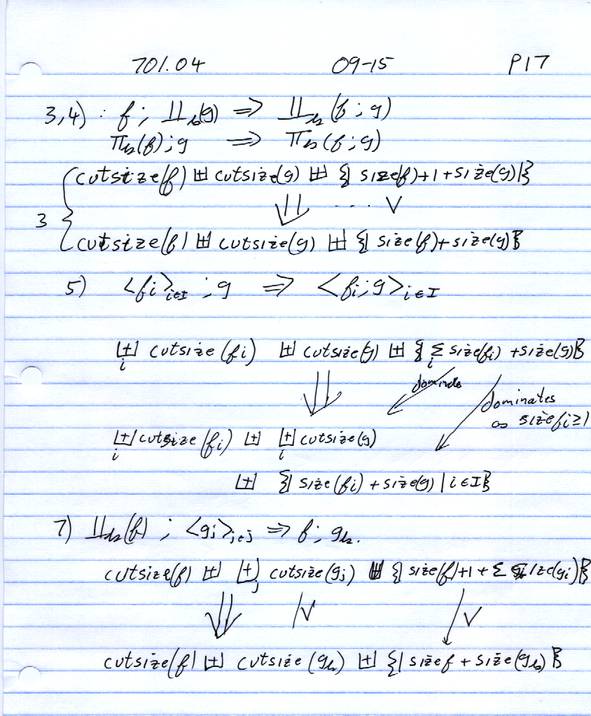 701.04 09-15 P17
3,4) : f ; ∐ₖ(g) ⇒ ∐ₖ(f ; g)
∏ₖ(f) ; g ⇒ ∏ₖ(f ; g)
cutsize(f) ⊎ cutsize(g) ⊎ {| size(f)+1+size(g) |}
3 { ⇓ ... ∨
cutsize(f) ⊎ cutsize(g) ⊎ {| size(f)+size(g) |}
5) <fi>i∈I ; g ⇒ <fi;g>i∈I
⊎i cutsize(fi) ⊎ cutsize(g) ⊎ {| Σi size(fi) + size(g) |}
⇓ dominates
dominates
as size(fi)≥1
⊎i cutsize(fi) ⊎ ⊎i cutsize(g)
⊎ {| size(fi) + size(g) | i∈I |}
7) ∐ₖ(f) ; <gj>j∈J ⇒ f ; gₖ.
cutsize(f) ⊎ ⊎j cutsize(gj) ⊎ {| size(f)+1+ Σ size(gi) |}
⇓ |∨ ∨
cutsize(f) ⊎ cutsize(gₖ) ⊎ {| size f + size(gₖ) |}